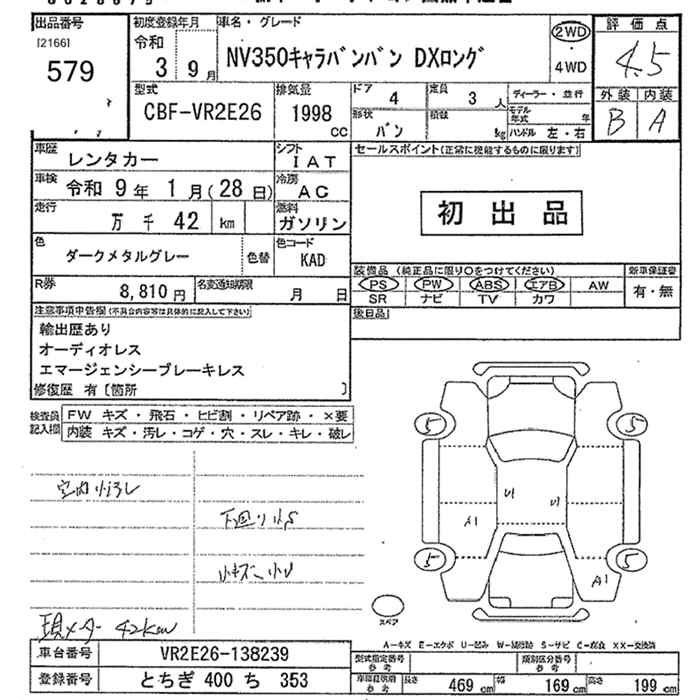 出品番号
[2166]
579
初度登録年月
令和
3 9月
車名・グレード
NV350キャラバンバン DXロング
2WD
4WD
評価点
4.5
外装 内装
B A
型式
CBF-VR2E26
排気量
1998
cc
ドア
4
定員
3 人
形状
バン
積載
kg
ディーラー・並行
モデル年式 年
ハンドル 左・右
車歴
レンタカー
シフト
IAT
車検
令和 9年 1月(28日)
冷房
AC
走行
万 千 42 km
燃料
ガソリン
色
ダークメタルグレー
色替
色コード
KAD
R券
8,810円
名変通知期限
月 日
セールスポイント(正常に機能するものに限ります)
初出品
装備品 (純正品に限り○をつけてください)
PS PW ABS エアB AW
SR ナビ TV カワ
新車保証書
有・無
後日品
注意事項申告欄(不具合内容等は具体的に記入して下さい)
輸出歴あり
オーディオレス
エマージェンシーブレーキレス
修復歴 有〔箇所 〕
検査員記入欄
FW キズ・飛石・ヒビ割・リペア跡・×要
内装 キズ・汚レ・コゲ・穴・スレ・キレ・破レ
下廻り小S
現メーター 42km
5 5
5 5
A1
スペア
A-キズ E-エクボ U-凹み W-補修跡 S-サビ C-腐食 XX-交換済
車台番号
VR2E26-138239
登録番号
とちぎ 400 ち 353
型式指定番号
参考
類別区分番号
参考
車両諸元明
参考
長さ 469 cm
幅 169 cm
高さ 199 cm